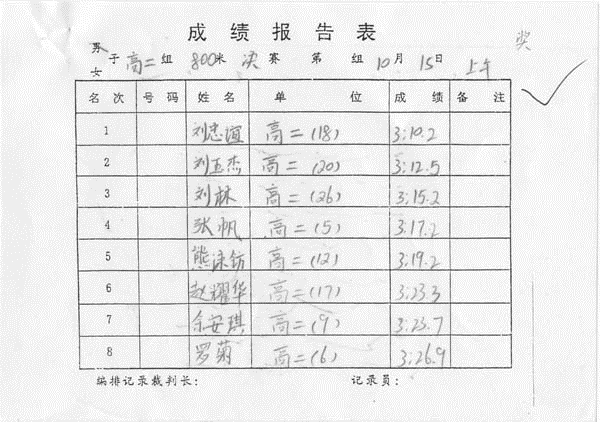 成绩报告表
奖
男
女
子 高二 组 800米 决 赛 第 组 10月 15日 上午
名次 号码 姓名 单位 成绩 备注
1 刘忠谊 高二(18) 3:10.2
2 刘玉杰 高二(20) 3:12.5
3 刘林 高二(26) 3:15.2
4 张帆 高二(5) 3:17.2
5 熊 高二(12) 3:19.2
6 赵耀华 高二(17) 3:23.3
7 余安琪 高二(9) 3:23.7
8 罗菊 高二(6) 3:26.9
编排记录裁判长: 记录员: